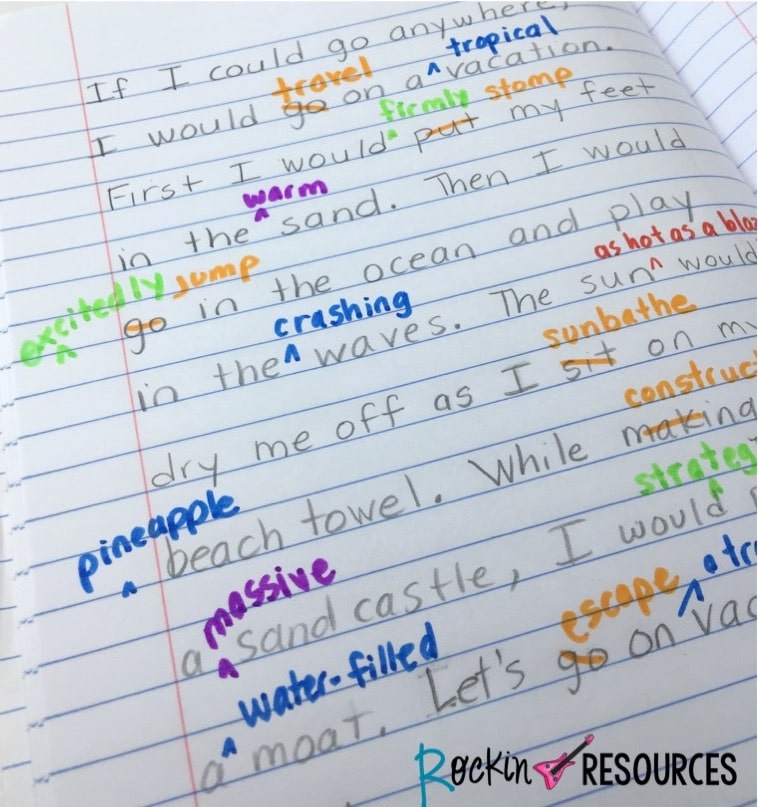 If I could go anywhere,
tropical
travel
I would go on a ^ vacation.
firmly stomp
First I would ^ put my feet
warm
in the ^ sand. Then I would
excitedly jump
^ go in the ocean and play
crashing as hot as a
in the ^ waves. The sun ^ would
sunbathe
dry me off as I sit on my
pineapple
^ beach towel. While making
massive
a ^ sand castle, I would ^
water-filled escape
a ^ moat. Let's go on ^
Rockin RESOURCES